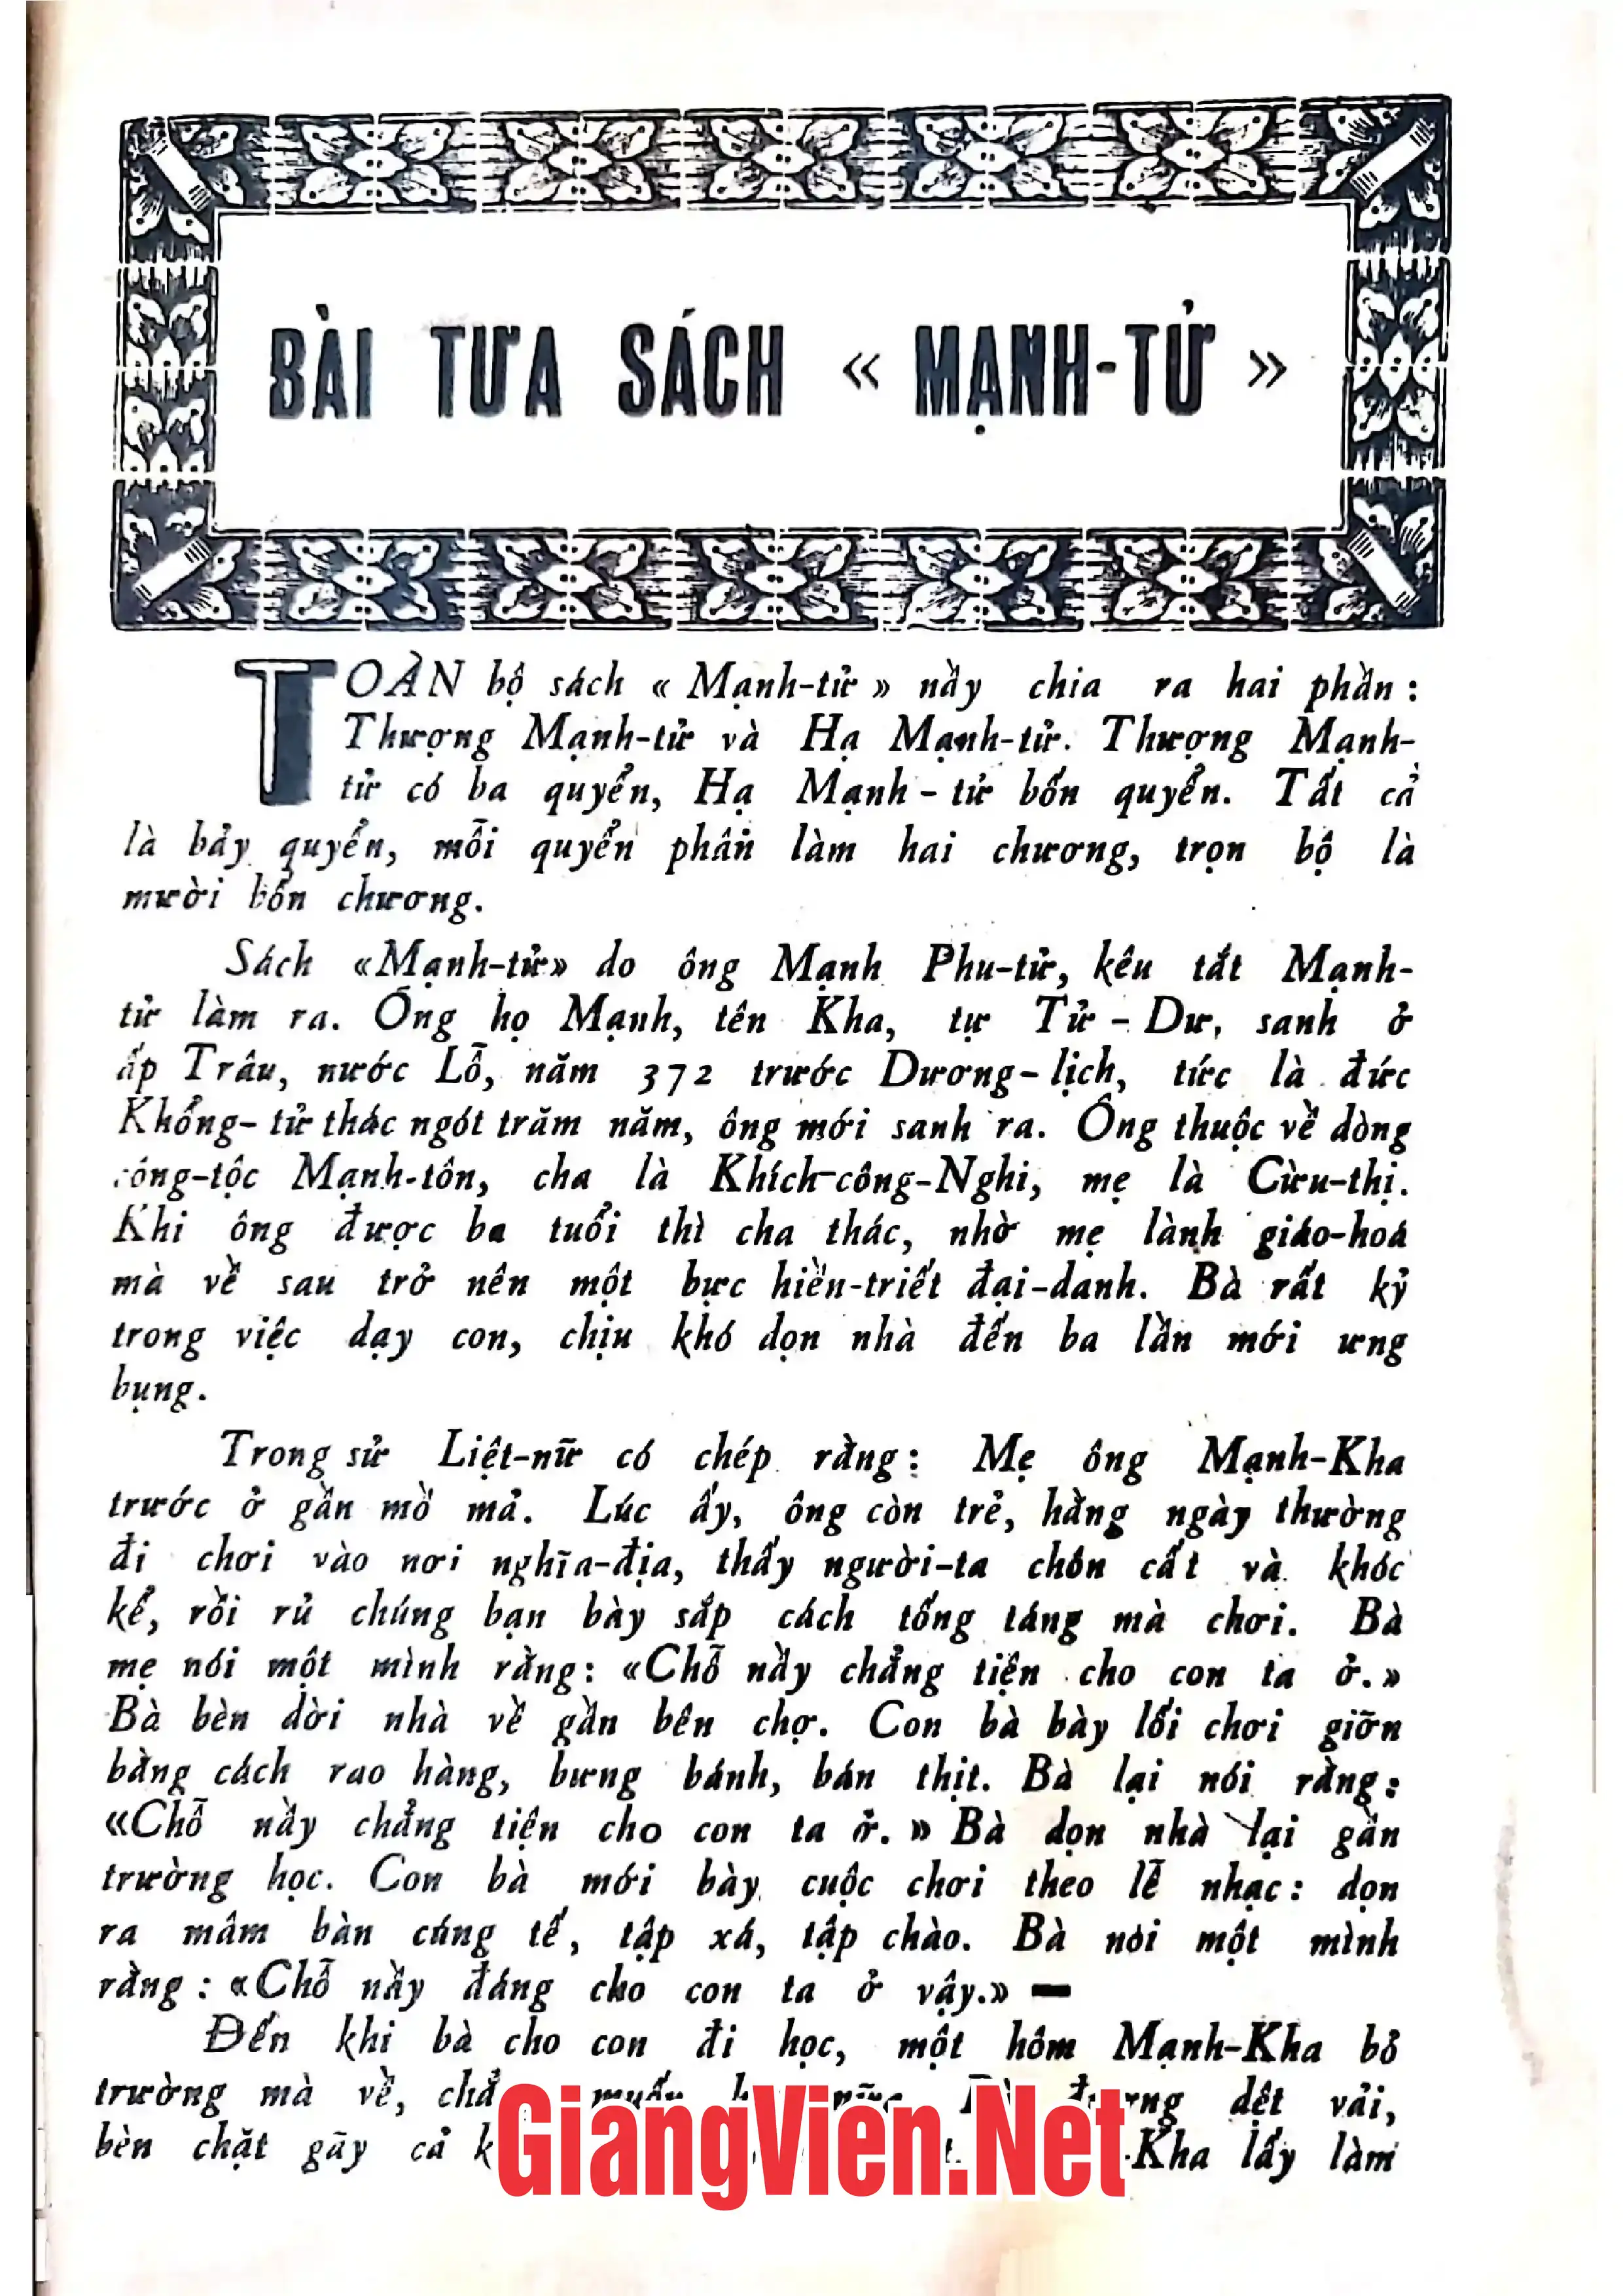 BÀI TỰA SÁCH « MẠNH-TỬ »
TOÀN bộ sách « Mạnh-tử » nầy chia ra hai phần :
Thượng Mạnh-tử và Hạ Mạnh-tử. Thượng Mạnh-
tử có ba quyển, Hạ Mạnh-tử bốn quyển. Tất cả
là bảy quyển, mỗi quyển phân làm hai chương, trọn bộ là
mười bốn chương.
Sách «Mạnh-tử» do ông Mạnh Phu-tử, kêu tắt Mạnh-
tử làm ra. Ông họ Mạnh, tên Kha, tự Tử-Dư, sanh ở
ấp Trâu, nước Lỗ, năm 372 trước Dương-lịch, tức là đức
Khổng-tử thác ngót trăm năm, ông mới sanh ra. Ông thuộc về dòng
công-tộc Mạnh-tôn, cha là Khích-công-Nghi, mẹ là Cừu-thị.
Khi ông được ba tuổi thì cha thác, nhờ mẹ lành giáo-hoá
mà về sau trở nên một bực hiền-triết đại-danh. Bà rất kỷ
trong việc dạy con, chịu khó dọn nhà đến ba lần mới ưng
bụng.
Trong sử Liệt-nữ có chép rằng: Mẹ ông Mạnh-Kha
trước ở gần mồ mả. Lúc ấy, ông còn trẻ, hằng ngày thường
đi chơi vào nơi nghĩa-địa, thấy người-ta chôn cất và khóc
kể, rồi rủ chúng bạn bày sắp cách tống táng mà chơi. Bà
mẹ nói một mình rằng: «Chỗ nầy chẳng tiện cho con ta ở.»
Bà bèn dời nhà về gần bên chợ. Con bà bày lối chơi giỡn
bằng cách rao hàng, bưng bánh, bán thịt. Bà lại nói rằng:
«Chỗ nầy chẳng tiện cho con ta ở.» Bà dọn nhà lại gần
trường học. Con bà mới bày cuộc chơi theo lễ nhạc: dọn
ra mâm bàn cúng tế, tập xá, tập chào. Bà nói một mình
rằng : «Chỗ nầy đáng cho con ta ở vậy.» —
Đến khi bà cho con đi học, một hôm Mạnh-Kha bỏ
trường mà về, dệt vải,
bèn chặt gãy cả -Kha lấy làm
GiangVien.Net